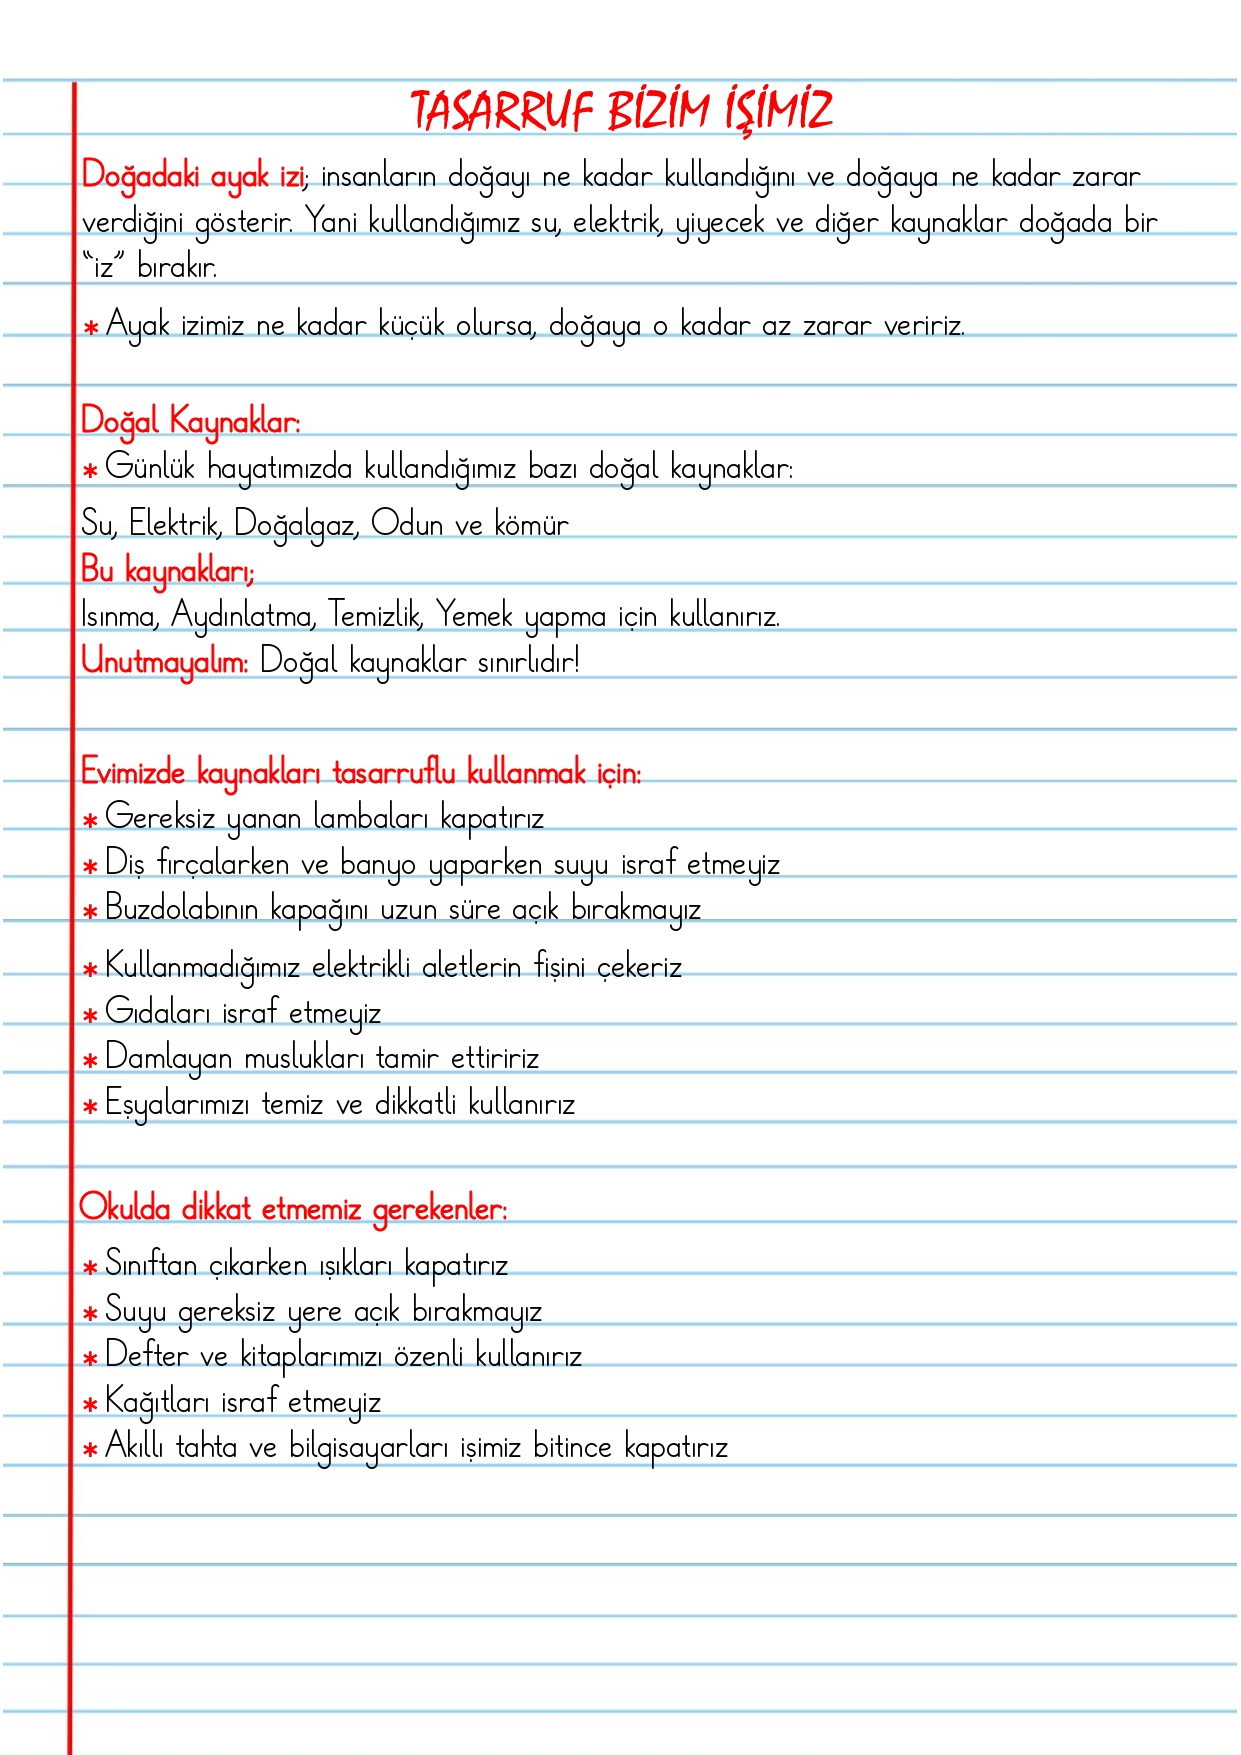 TASARRUF BİZİM İŞİMİZ
Doğadaki ayak izi; insanların doğayı ne kadar kullandığını ve doğaya ne kadar zarar
verdiğini gösterir. Yani kullandığımız su, elektrik, yiyecek ve diğer kaynaklar doğada bir
“iz” bırakır.
* Ayak izimiz ne kadar küçük olursa, doğaya o kadar az zarar veririz.
Doğal Kaynaklar:
* Günlük hayatımızda kullandığımız bazı doğal kaynaklar:
Su, Elektrik, Doğalgaz, Odun ve kömür
Bu kaynakları;
Isınma, Aydınlatma, Temizlik, Yemek yapma için kullanırız.
Unutmayalım: Doğal kaynaklar sınırlıdır!
Evimizde kaynakları tasarruflu kullanmak için:
* Gereksiz yanan lambaları kapatırız
* Diş fırçalarken ve banyo yaparken suyu israf etmeyiz
* Buzdolabının kapağını uzun süre açık bırakmayız
* Kullanmadığımız elektrikli aletlerin fişini çekeriz
* Gıdaları israf etmeyiz
* Damlayan muslukları tamir ettiririz
* Eşyalarımızı temiz ve dikkatli kullanırız
Okulda dikkat etmemiz gerekenler:
* Sınıftan çıkarken ışıkları kapatırız
* Suyu gereksiz yere açık bırakmayız
* Defter ve kitaplarımızı özenli kullanırız
* Kağıtları israf etmeyiz
* Akıllı tahta ve bilgisayarları işimiz bitince kapatırız